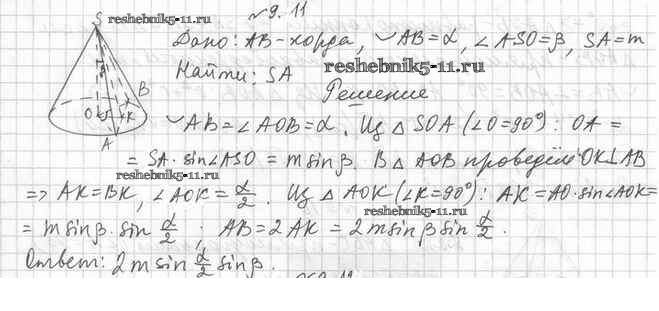 reshebnik5-11.ru
№9. 11
S
B
O
K
A
Дано: AB-хорда, ◡AB=α, ∠ASO=β, SA=m
Найти: SA
reshebnik5-11.ru
Решение
◡AB=∠AOB=α. Из △SOA (∠O=90°): OA =
= SA·sin∠ASO = m sinβ. В △AOB проведём OK⊥AB
reshebnik5-11.ru
=> AK=BK, ∠AOK = α/2. Из △AOK (∠K=90°): AK=AO·sin∠AOK=
reshebnik5-11.ru
= m sinβ·sin α/2 ; AB=2AK = 2m sinβ sin α/2.
Ответ: 2m sin α/2 sinβ.